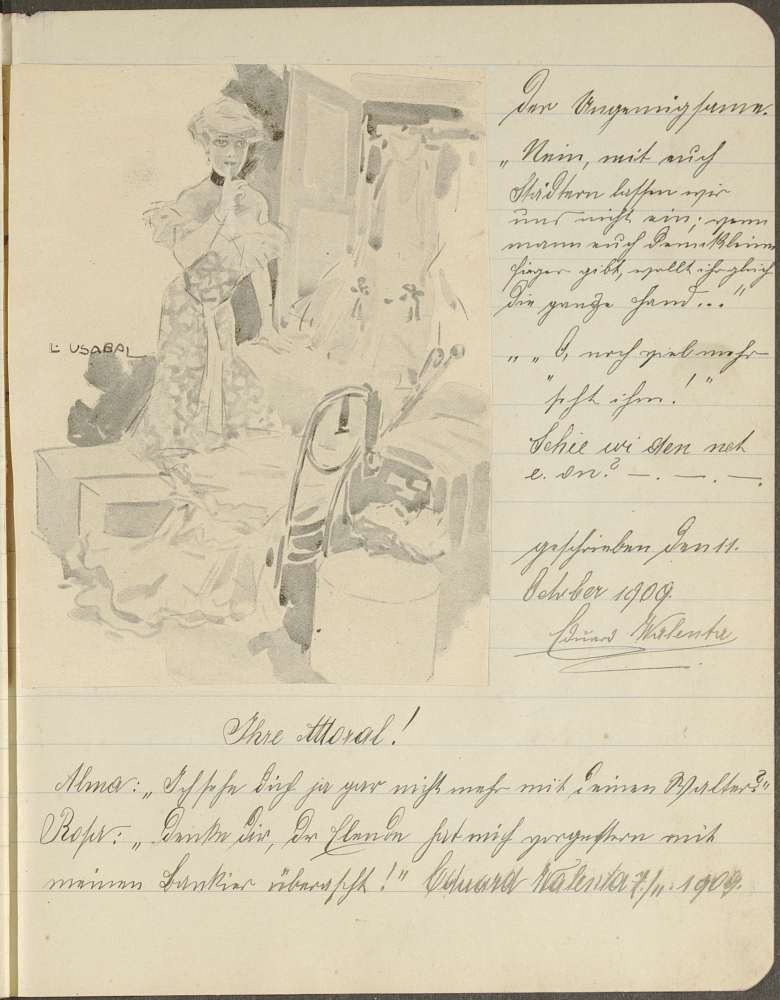 Der Ungenügsame.
„Nein, mit euch
Städtern lassen wir
uns nicht ein; wenn
mann euch den kleinen
Finger gibt, wollt ihr gleich
die ganze Hand..."
„„O, noch viel mehr
""
geschrieben den 11.
October 1909
Eduard Walenta
L. USABAL
Ihre Moral!
Alma: „Ich sehe dich ja gar nicht mehr mit deinen Walter?"
Rosa: „Denke dir, dr Elende hat mich vorgestern mit
meinen Bankier überascht!" Eduard Walenta 7./11. 1909.